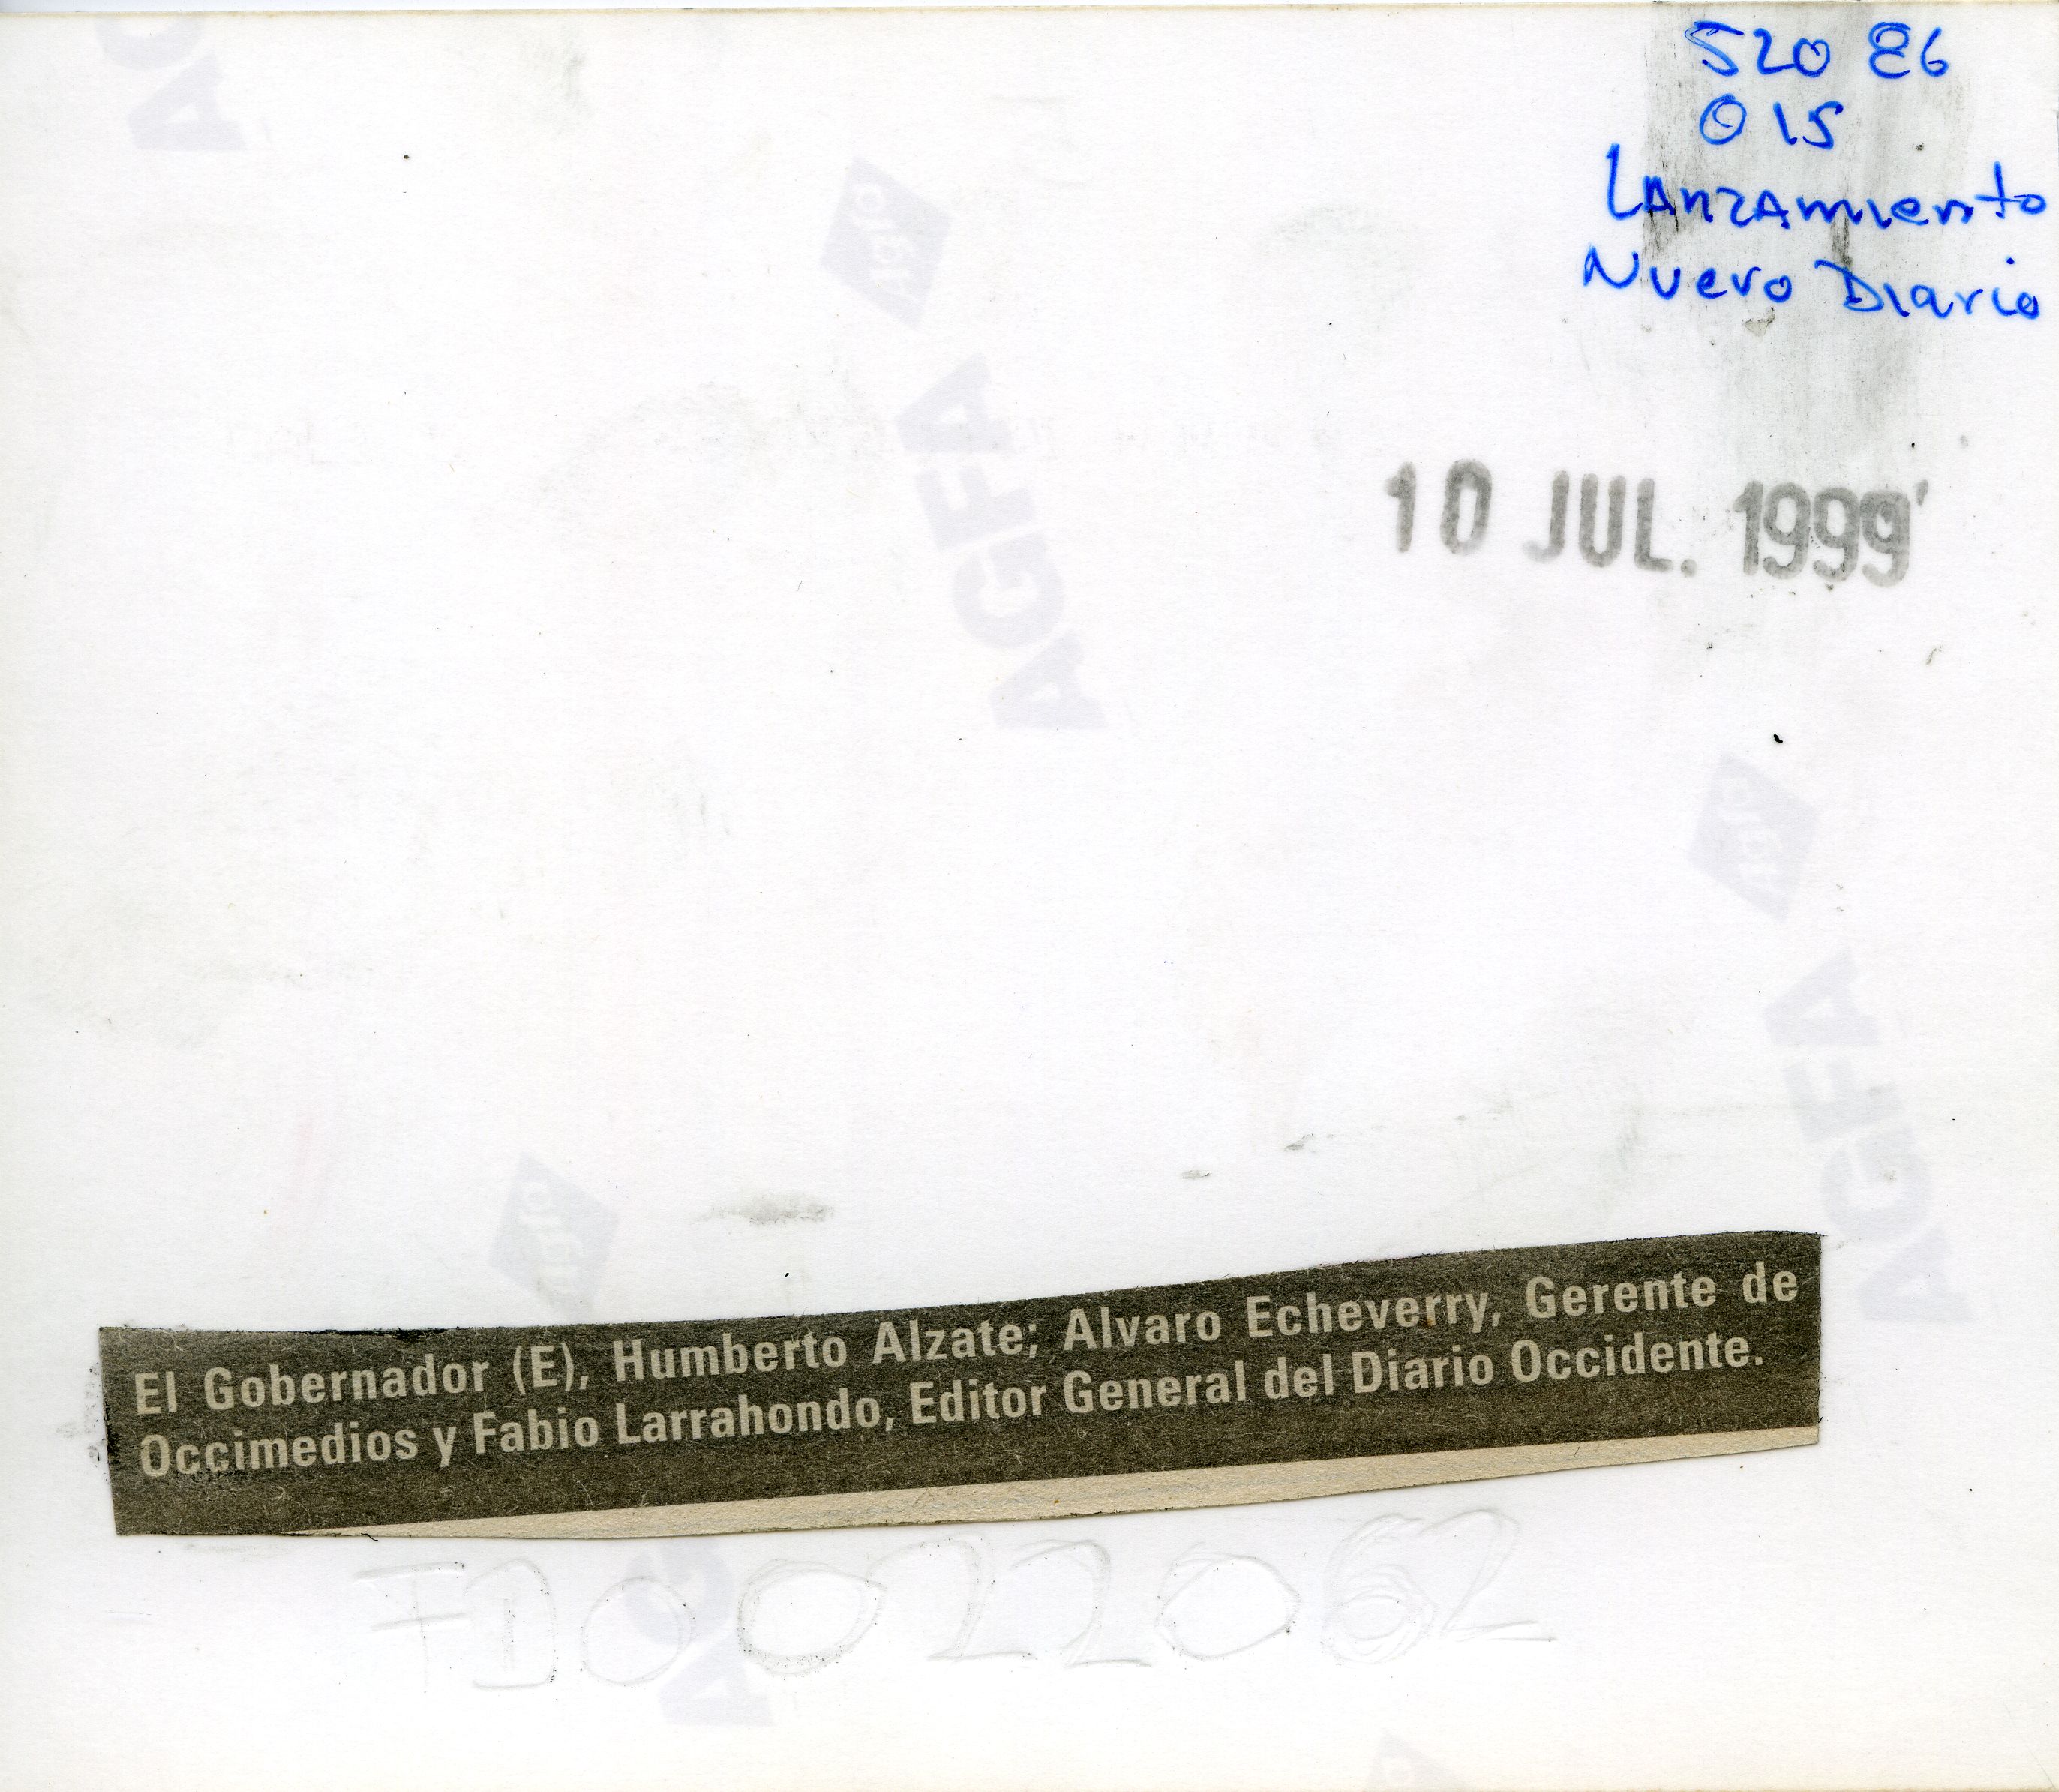 520 E6
015
Lanzamiento
Nuevo Diario
10 JUL. 1999
AGFA
AGFA
El Gobernador (E), Humberto Alzate; Alvaro Echeverry, Gerente de
Occimedios y Fabio Larrahondo, Editor General del Diario Occidente.